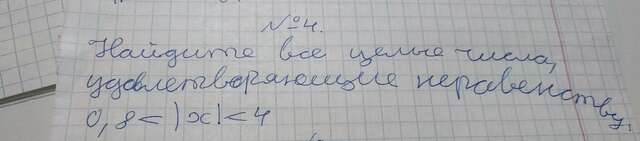 №4.
Найдите все целые числа,
удовлетворяющие неравенству:
0,8<|x|<4